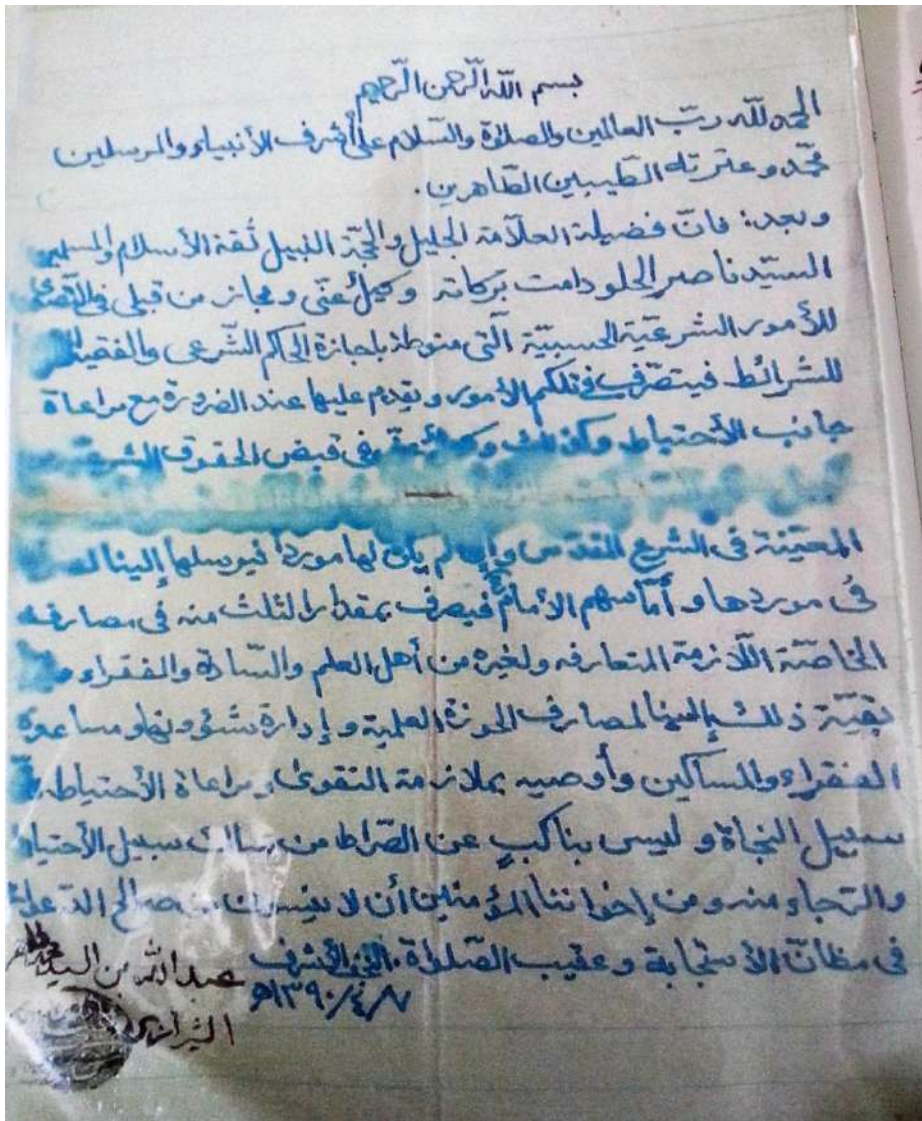 بسم الله الرّحمن الرّحيم
الحمد للّه ربّ العالمين والصلاة والسّلام على أشرف الأنبياء والمرسلين
محمّد وعترته الطّيبين الطّاهرين.
وبعد: فانّ فضيلة العلاّمة الجليل والحجّة النبيل ثقة الأسلام والمسلمين
السيّد ناصر الحلو دامت بركاته وكيلٌ عنّي ومجاز من قبلي في التصدّي
للأمور الشرعيّة الحسبيّة الّتي منوطة باجازة الحاكم الشّرعي والفقيه
للشرائط فيتصرّف في تلكم الأمور ويقدم عليها عند الضرورة مع مراعاة
جانب الأحتياط وكذلك في قبض الحقوق
المعيّنة في الشرع المقدّس وإن لم يكن لها مورداً فيرسلها إلينا
في موردها وأمّا سهم الأمام فيصرف بمقدار الثلث منه في مصارفه
الخاصّة اللّازمة المتعارفه ولغيره من أهل العلم والسّادة والفقراء
بقيّة ذلك إلينا لمصارف الحوزة العلمية وإدارة شؤونها ومساعدة
الفقراء والمساكين وأوصيه بملازمة التقوى ومراعاة الأحتياط
سبيل النجاة وليس بناكبٍ عن الصّراط من سالك سبيل الأحتياط
والرّجاء منه ومن إخواننا المؤمنين أن لا ينسوني من صالح الدعاء
في مظانّ الأستجابة وعقيب الصّلواة. النجف الأشرف
١٣٩٠/٤/٧هـ
عبدالله بن السيد
الشيرازي